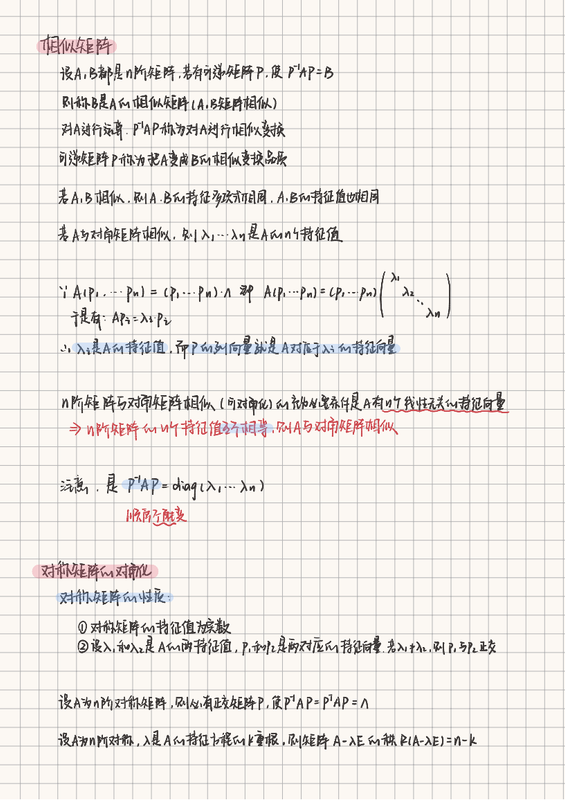 相似矩阵
设A,B都是n阶矩阵,若有可逆矩阵P,使 P⁻¹AP=B
则称B是A的相似矩阵(A,B矩阵相似)
对A进行运算 P⁻¹AP称为对A进行相似变换
可逆矩阵P称为把A变成B的相似变换
若A,B相似,则A,B的特征多项式相同,A,B的特征值也相同
若A与对角矩阵相似,则λ₁…λn是A的n个特征值
∵ A(p₁,…pn)=(p₁,…pn)·Λ 即 A(p₁…pn)=(p₁…pn)(λ₁ λ₂ ⋱ λn)
于是有: Apᵢ=λᵢ·pᵢ
∴ λᵢ是A的特征值,而P的列向量就是A对应于λᵢ的特征向量
n阶矩阵与对角矩阵相似(可对角化)的充分必要条件是A有n个线性无关的特征向量
⇒ n阶矩阵的n个特征值互不相等,则A与对角矩阵相似
注意,是 P⁻¹AP=diag(λ₁…λn)
顺序不能变
对称矩阵的对角化
对称矩阵的性质:
① 对称矩阵的特征值为实数
② 设λ₁和λ₂是A的两特征值,p₁和p₂是两对应的特征向量.若λ₁≠λ₂,则p₁与p₂正交
设A为n阶对称矩阵,则必有正交矩阵P,使P⁻¹AP=PᵀAP=Λ
设A为n阶对称,λ是A的特征方程的k重根,则矩阵A-λE的秩R(A-λE)=n-k